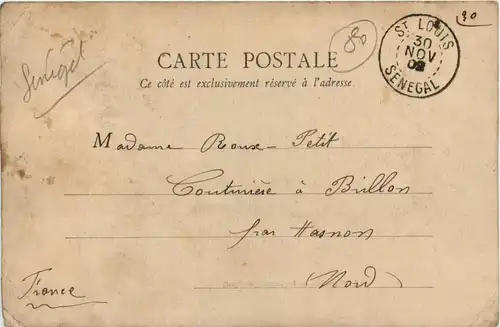 Senégal
80
90
ST LOUIS
30
NOV
02
SENEGAL
CARTE POSTALE
Ce côté est exclusivement réservé à l'adresse
Madame Roux-Petit
Couturière à Brillon
par Hasnon
Nord
France